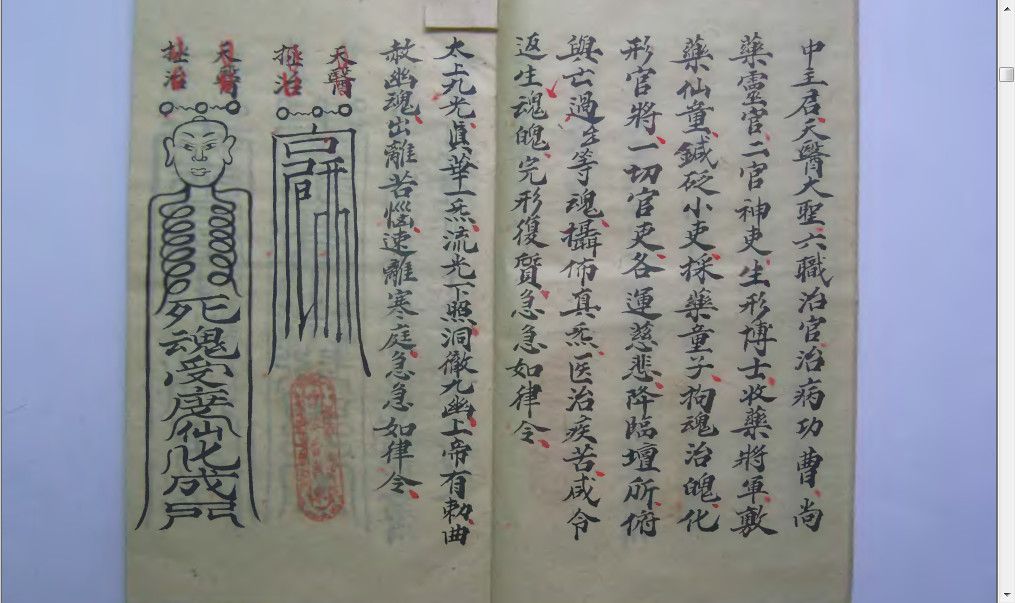 中主君天醫大聖六職治官治病功曹尚
藥靈官二官神吏生形博士收藥將軍敷
藥仙童鍼砭小吏採藥童子狗魂治魄化
形官將一切官吏各運慈悲降臨壇所俯
與亡過△等魂攝佈真炁医治疾苦咸令
返生魂魄完形復質急急如律令
太上九光真華一炁流光下照洞徹九幽上帝有勅曲
赦幽魂出離苦惱速離寒庭急急如律令
天醫
拯治
天醫
拯治
死魂受度仙化成